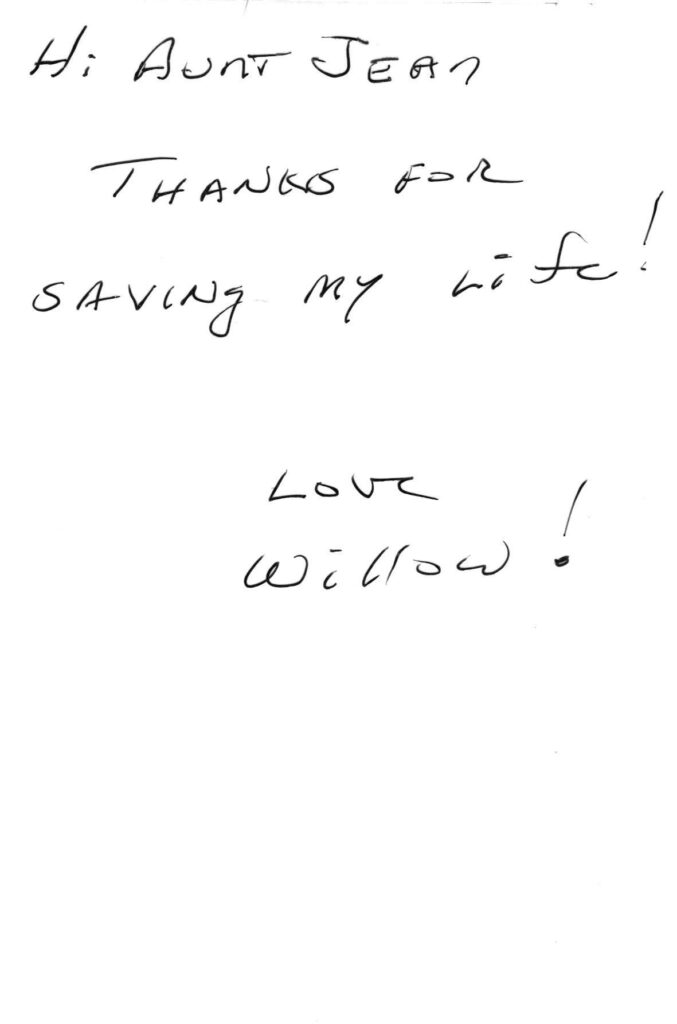 Hi Aunt Jean
Thanks for
saving my Life!
Love
Willow!